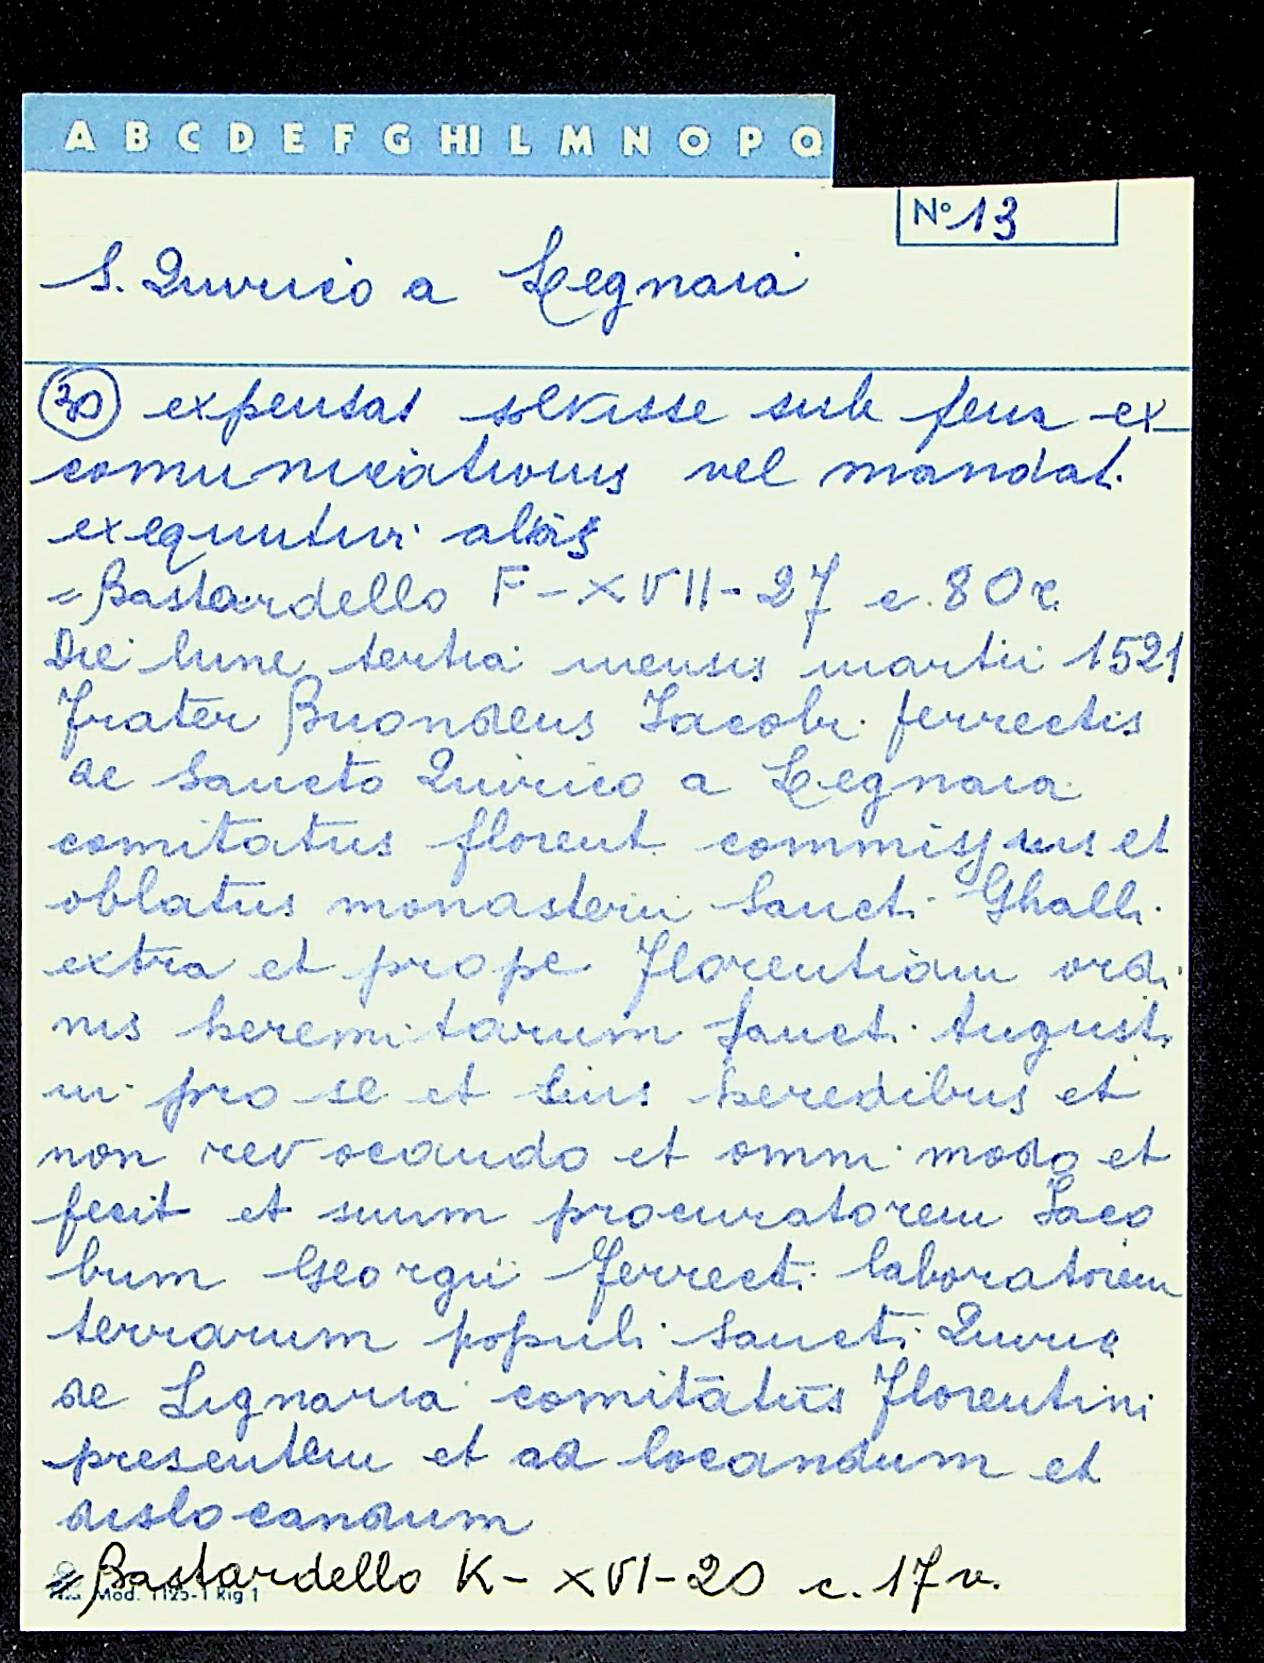 A B C D E F G HI L M N O P Q
N° 13
S. Quirico a Legnaia
30 expensas solvisse sub pena ex
comunicationis vel mandat.
exequuntur alias
= Bastardello F-XVII-27 c. 80 r.
Die lune tertia mensis martii 1521
Frater Buondeus Iacobi ferrectis
de Sancto Quirico a Legnaia
comitatus florent. commissus et
oblatus monasterii Sancti Ghalli
extra et prope Florentiam ordi
nis heremitarum sancti August
ini pro se et suis heredibus et
non revocando et omni modo et
fecit et suum procuratorem Iaco
bum Georgii Ferrecti laboratorem
terrarum populi Sancti Quirici
de Lignaria comitatus Florentini
presentem et ad locandum et
dislocandum
= Bastardello K-XVI-20 c. 17 v.
Mod. 1125-1 Rig. 1